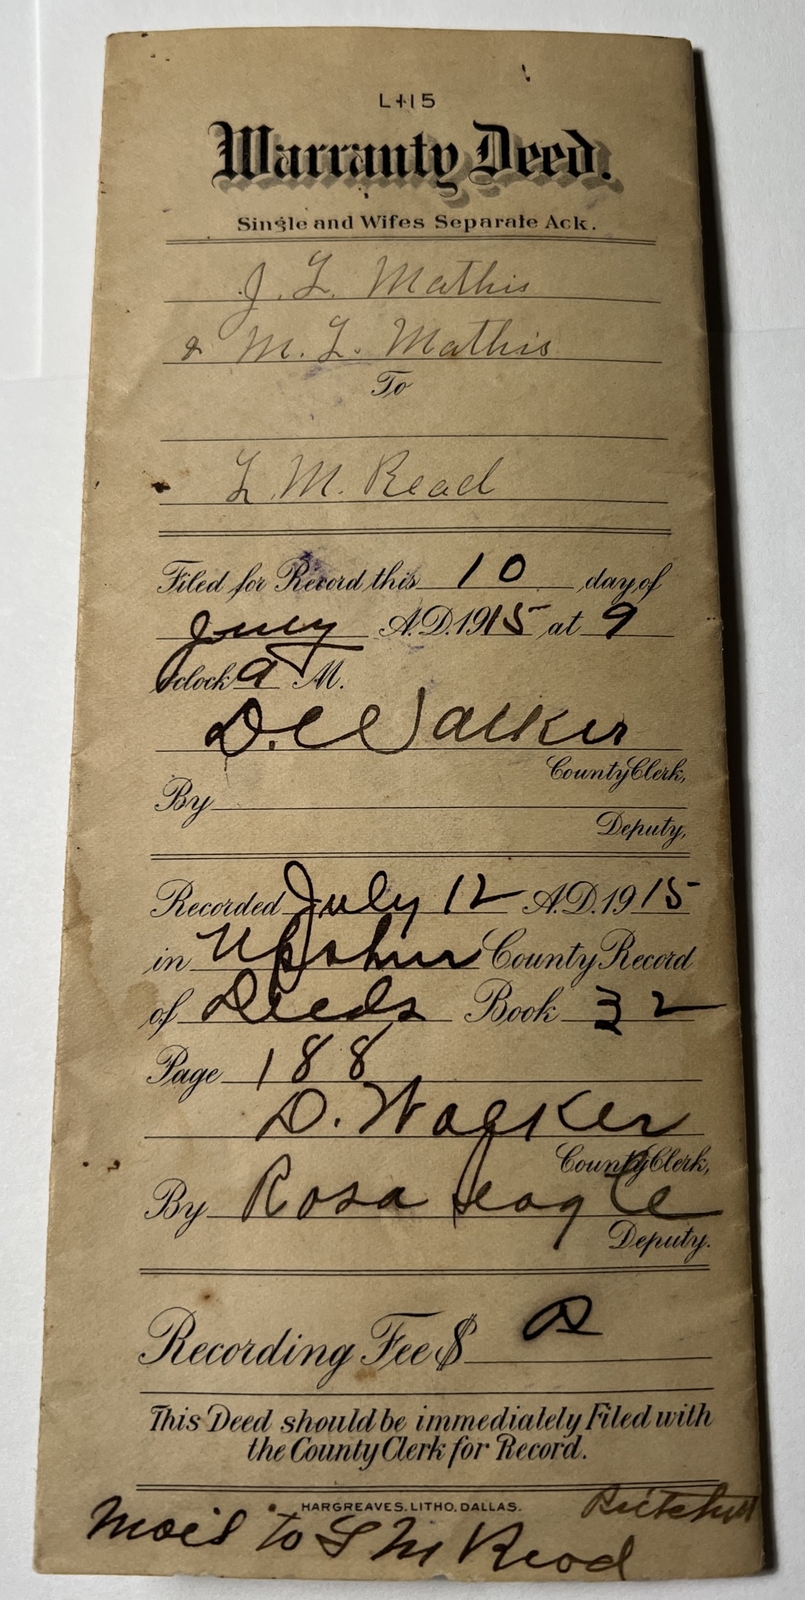 L415
Warranty Deed.
Single and Wifes Separate Ack.
J. L. Mathis
& M. L. Mathis
To
L. M. Read
Filed for Record this 10 day of
July A.D. 1915 at 9
o'clock a M.
D. C Walker
County Clerk,
By
Deputy,
Recorded July 12 A.D. 1915
in Upshur County Record
of Deeds Book 32
Page 188
D. Walker
County Clerk,
By Rosa
Deputy.
Recording Fee $
This Deed should be immediately Filed with
the County Clerk for Record.
HARGREAVES. LITHO. DALLAS.
Mail to L M Read